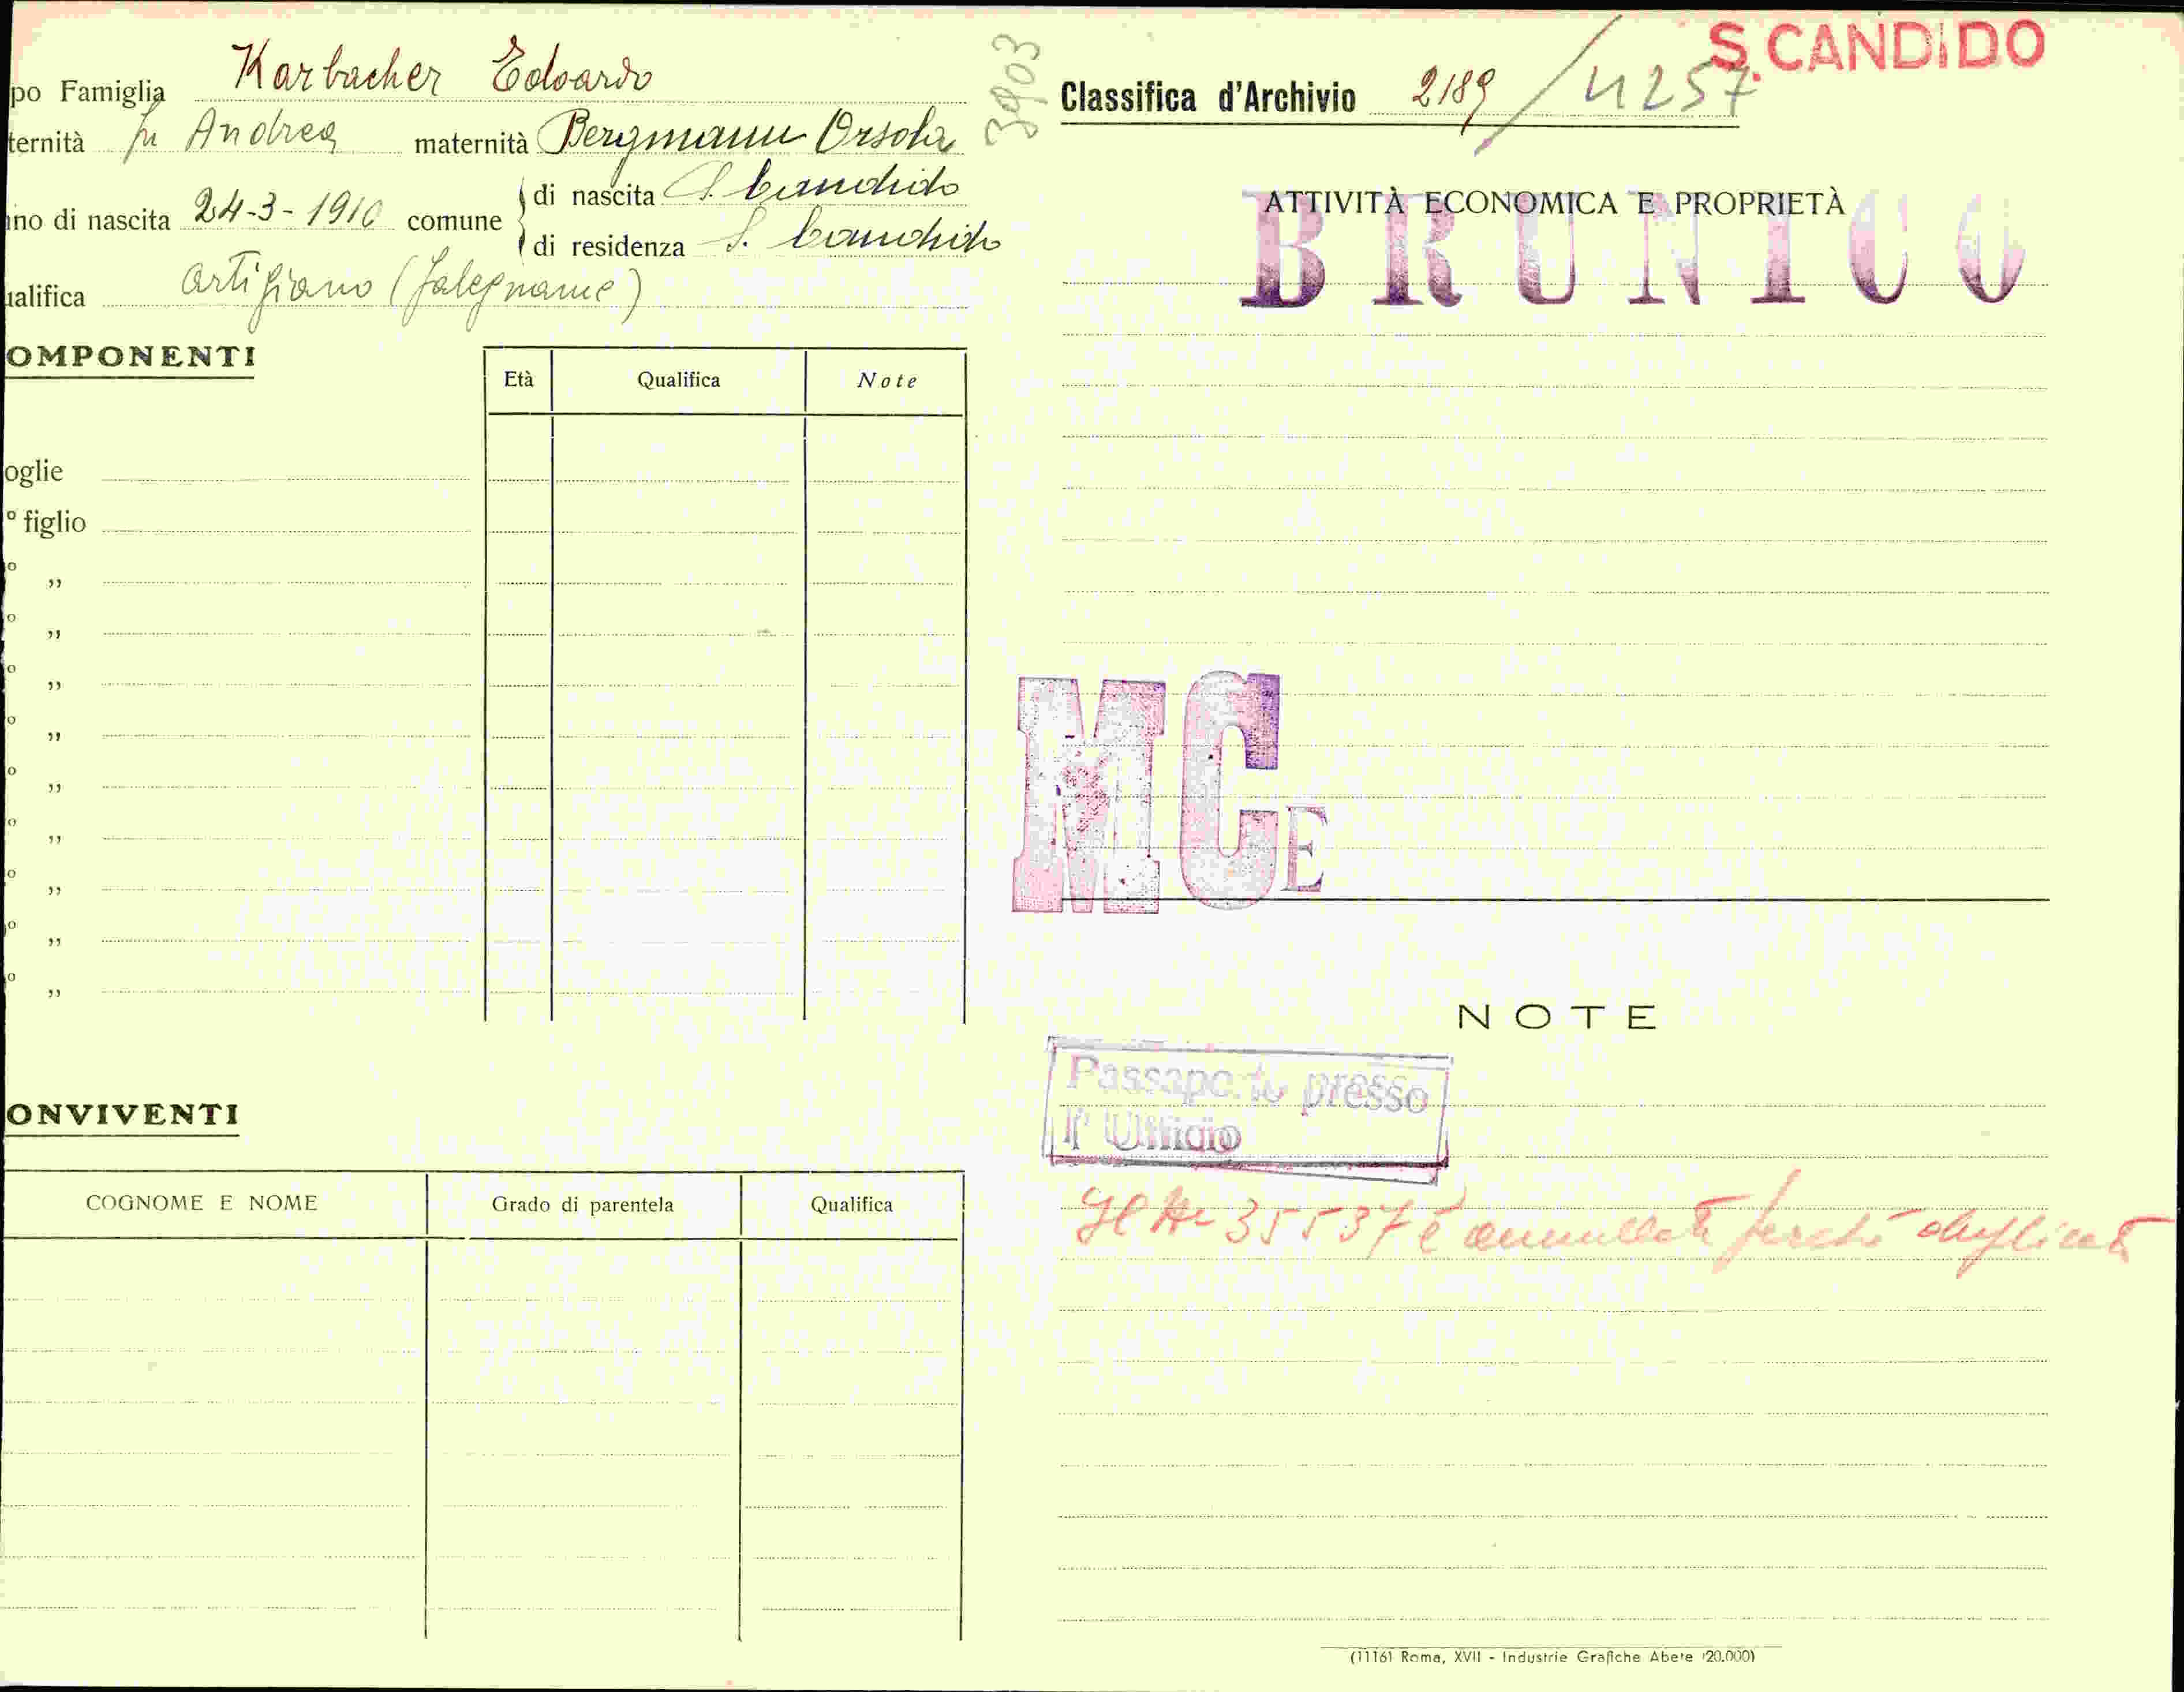 S. CANDIDO
po Famiglia Karbacher Edoardo
3903
Classifica d'Archivio 2189 / 11257
ternità fu Andrea maternità Bergmann Orsola
no di nascita 24-3-1910 comune
di nascita S. Candido
di residenza S. Candido
ualifica Artigiano (falegname)
ATTIVITÀ ECONOMICA E PROPRIETÀ
BRUNICO
OMPONENTI
Età Qualifica Note
oglie
° figlio
o „
o „
o „
o „
o „
o „
o „
o „
o „
MCE
NOTE
Passaporto presso
l' Ufficio
ONVIVENTI
COGNOME E NOME Grado di parentela Qualifica
Il № 35537 è annullato perché duplicato
(1116) Roma, XVII - Industrie Grafiche Abete (20.000)